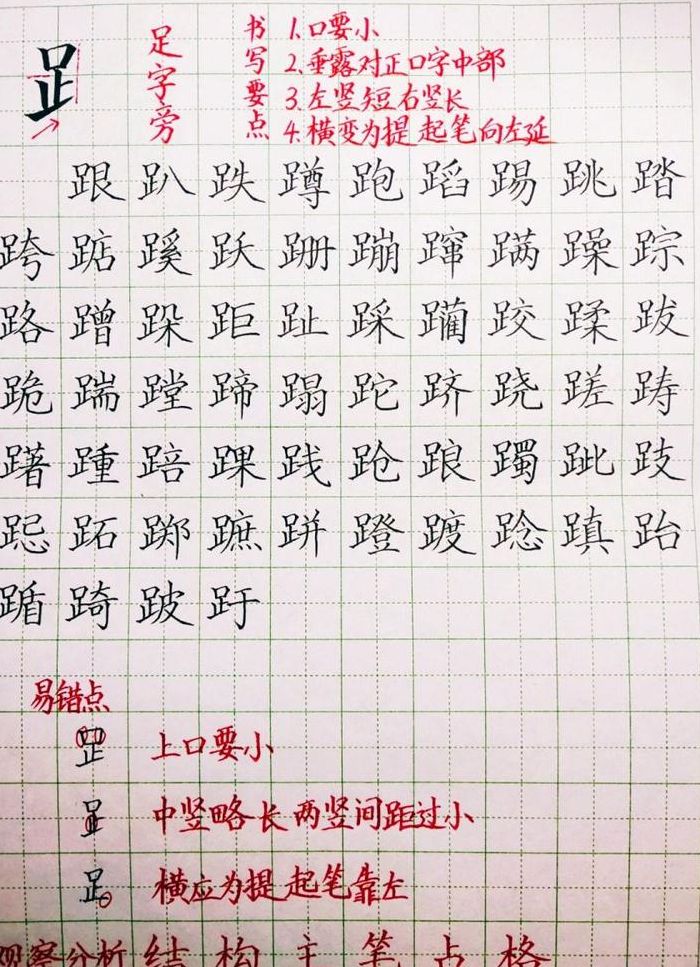 ⻊
足字旁
书写要点
1.口要小
2.垂露对正口字中部
3.左竖短右竖长
4.横变为提起笔向左延
跟趴跌蹲跑蹈踢跳踏
跨踮蹊跃跚蹦蹿蹒躁踪
路蹭跺距趾踩躏跤蹂跋
跪踹蹚蹄蹋跎跻跷蹉踌
躇踵踣踝践跄踉躅跐跂
跽跖踯蹠跰蹬踱踗蹎跆
踲踦跛趶
易错点
⻊ 上口要小
⻊ 中竖略长 两竖间距过小
⻊ 横应为提 起笔靠左
观察分析 结构主笔占格